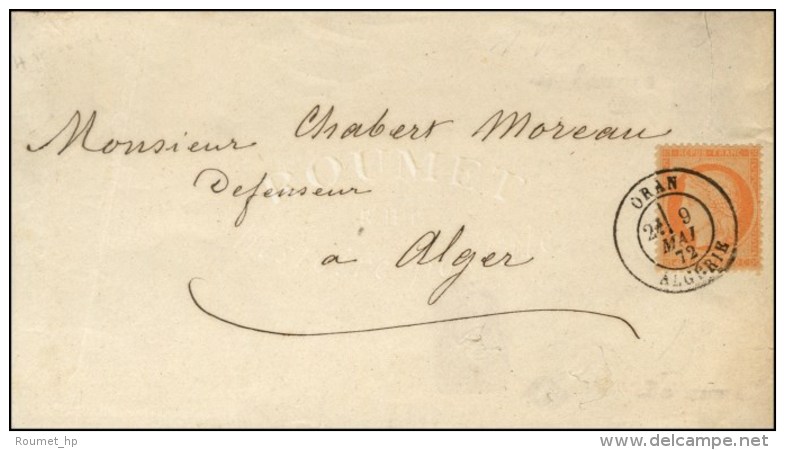 Monsieur Chabert Moreau
Defenseur
à Alger
REPUB. FRANC.
ORAN
2E/ 9
MAI
72
ALGERIE
ROUMET
Roumet_hp
delcampe.net